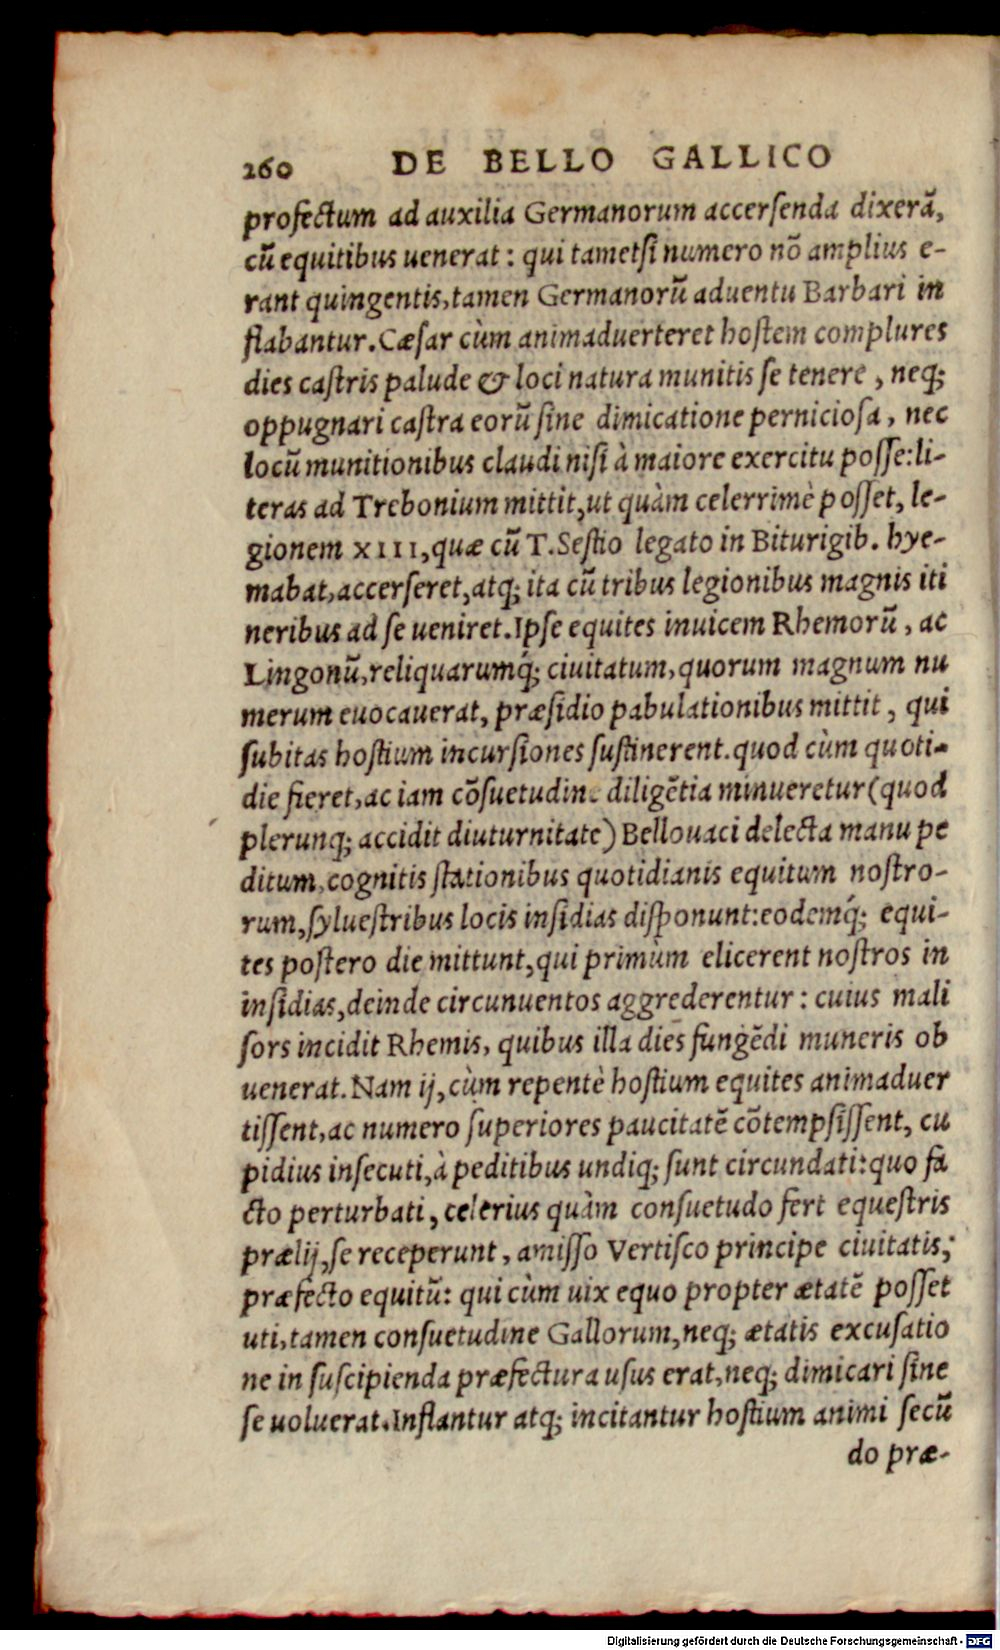 260 DE BELLO GALLICO
profectum ad auxilia Germanorum accerſenda dixerā,
cū equitibus uenerat: qui tametſi numero nō amplius e-
rant quingentis, tamen Germanorū aduentu Barbari in
flabantur. Cæſar cùm animaduerteret hoſtem complures
dies caſtris palude & loci natura munitis ſe tenere, neq;
oppugnari caſtra eorū ſine dimicatione pernicioſa, nec
locū munitionibus claudi niſi à maiore exercitu poſſe: li-
teras ad Trebonium mittit, ut quàm celerrimè poſſet, le-
gionem XIII, quæ cū T. Seſtio legato in Biturigib. hye-
mabat, accerſeret, atq; ita cū tribus legionibus magnis iti
neribus ad ſe ueniret. Ipſe equites inuicem Rhemorū, ac
Lingonū, reliquarumq́; ciuitatum, quorum magnum nu
merum euocauerat, præſidio pabulationibus mittit, qui
ſubitas hoſtium incurſiones ſuſtinerent. quod cùm quoti-
die fieret, ac iam cōſuetudine diligētia minueretur (quod
plerunq; accidit diuturnitate) Bellouaci delecta manu pe
ditum, cognitis ſtationibus quotidianis equitum noſtro-
rum, ſylueſtribus locis inſidias diſponunt: eodemq́; equi-
tes poſtero die mittunt, qui primùm elicerent noſtros in
inſidias, deinde circunuentos aggrederentur: cuius mali
ſors incidit Rhemis, quibus illa dies fungēdi muneris ob
uenerat. Nam ij, cùm repentè hoſtium equites animaduer
tiſſent, ac numero ſuperiores paucitatē cōtempſiſſent, cu
pidius inſecuti, à peditibus undiq; ſunt circundati: quo fa
cto perturbati, celerius quàm conſuetudo fert equeſtris
prælij, ſe receperunt, amiſſo Vertiſco principe ciuitatis,
præfecto equitū: qui cùm uix equo propter ætatē poſſet
uti, tamen conſuetudine Gallorum, neq; ætatis excuſatio
ne in ſuſcipienda præfectura uſus erat, neq; dimicari ſine
ſe uoluerat. Inflantur atq; incitantur hoſtium animi ſecū
do præ-
Digitalisierung gefördert durch die Deutsche Forschungsgemeinschaft - DFG